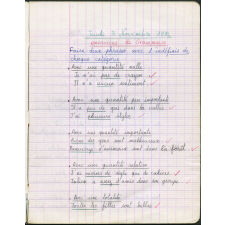 Jeudi 3 Novembre
exercices de Grammaire
Faire deux phrases avec 2 indéfinis de
chaque catégorie
. Avec une quantité nulle
Je n'ai pas de crayon
Il n'a aucun médicament
. Avec une quantité peu importante
J'ai peu de gras dans la
J'ai plusieurs stylos
. Avec une quantité importante
des gens sont malheureux
Beaucoup d'animaux sont dans la forêt.
. Avec une quantité relative
J'ai de stylo que de cahiers
a assez d'amis dans son groupe
. Avec une totalité
Toutes les filles sont belles